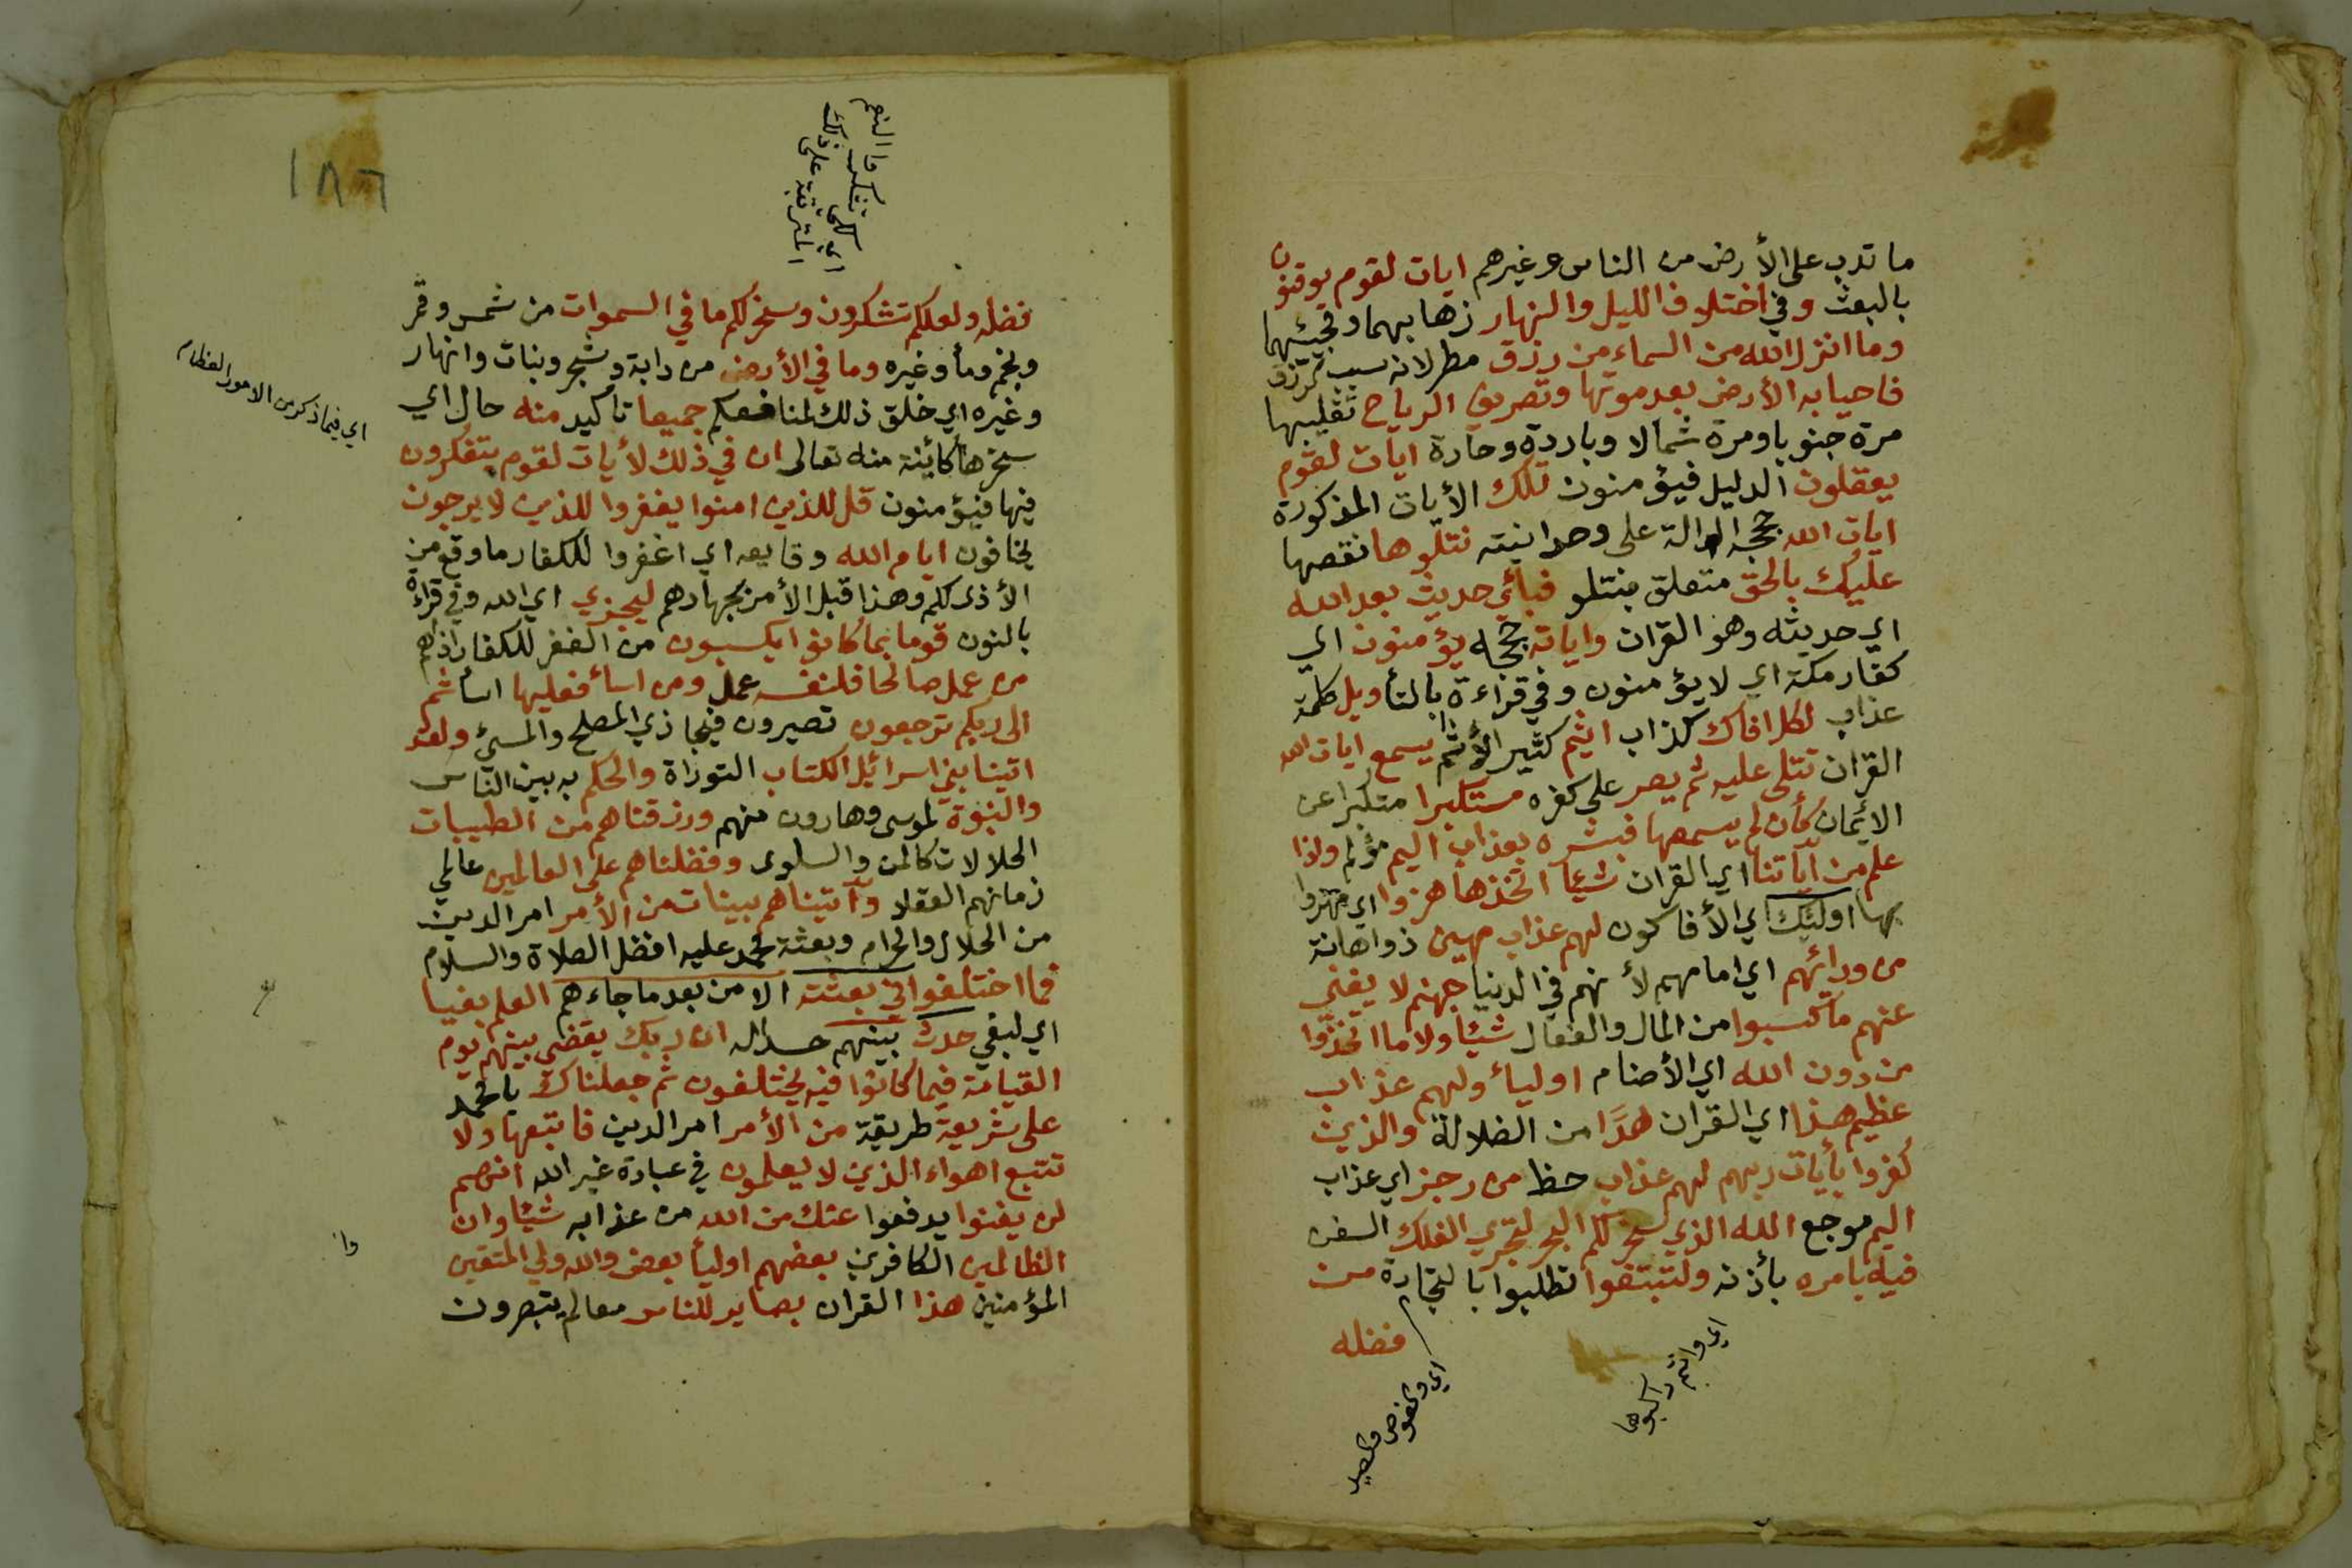 ما تدب على الأرض من الناس وغيرهم ايات لقوم يوقنون
بالبعث وفي اختلاف الليل والنهار ذهابهما ومجيئهما
وما انزل الله من السماء من رزق مطر لانه سبب الرزق
فاحيا به الأرض بعد موتها وتصريف الرياح تقليبها
مرة جنوبا ومرة شمالا وباردة وحارة ايات لقوم
يعقلون الدليل فيؤمنون تلك الأيات المذكورة
ايات الله حججه الدالة على وحدانيته نتلوها نقصها
عليك بالحق متعلق بنتلو فبأي حديث بعد الله
اي حديثه وهو القران واياته حججه يؤمنون اي
كفار مكة اي لا يؤمنون وفي قراءة بالتأ ويل كلمة
عذاب لكل افاك كذاب اثيم كثير الأثم يسمع ايات الله
القران تتلى عليه ثم يصر على كفره مستكبرا متكبرا عن
الأيمان كأن لم يسمعها فبشره بعذاب اليم مؤلم واذا
علم من آياتنا اي القران شيئا اتخذها هزوا اي مهزوا
بها اولئك اي الأفاكون لهم عذاب مهين ذو اهانة
من ورائهم اي امامهم لأنهم في الدنيا جهنم لا يغني
عنهم ما كسبوا من المال والفعال شيئا ولا ما اتخذوا
من دون الله اي الأصنام اولياء ولهم عذاب
عظيم هذا اي القران هدًا من الضلالة والذين
كفروا بأيات ربهم لهم عذاب حظ من رجز اي عذاب
اليم موجع الله الذي سخر لكم البحر لتجري الفلك السفن
فيه بامره بأذنه ولتبتغوا تطلبوا بالتجارة من
فضله
اي وانتم راكبوها
اي والغوص والصيد
١٨٦
والنعم
تشكرون ذلك
فضله ولعلكم تشكرون وسخر لكم ما في السموات من شمس وقمر
ونجم ومأ وغيره وما في الأرض من دابة وشجر ونبات وانهار
وغيره اي خلق ذلك لمنافعكم جميعا تأكيد منه حال اي
سخرها كائنة منه تعالى ان في ذلك لأيات لقوم يتفكرون
فيها فيؤمنون قل للذين امنوا يغفروا للذين لا يرجون
يخافون ايام الله وقايعه اي اغفروا للكفار ما وقع من
الأذى لكم وهذا قبل الأمر بجهادهم ليجزي اي الله وفي قراءة
بالنون قوما بما كانوا يكسبون من الغفر للكفار اذاهم
من عمل صالحا فلنفسه عمل ومن اسأ فعليها اسأ ثم
الى ربكم ترجعون تصيرون فيجازي المصلح والمسيئ ولقد
اتينا بني اسرائيل الكتاب التوراة والحكم به بين الناس
والنبوة لموسى وهارون منهم ورزقناهم من الطيبات
الحلالات كالمن والسلوى وفضلناهم على العالمين عالمي
زمانهم العقلا وآتيناهم بينات من الأمر امر الدين
من الحلال والحرام وبعثة محمد عليه افضل الصلاة والسلام
فما اختلفوا في بعثته الا من بعد ما جاءهم العلم بغيا
اي لبغي حدث بينهم حسدا له ان ربك يقضي بينهم يوم
القيامة فيما كانوا فيه يختلفون ثم جعلناك يا محمد
على شريعة طريقة من الأمر امر الدين فاتبعها ولا
تتبع اهواء الذين لا يعلمون في عبادة غير الله انهم
لن يغنوا يدفعوا عنك من الله من عذابه شيئا وان
الظالمين الكافرين بعضهم اوليأ بعض والله ولي المتقين
المؤمنين هذا القران بصاير للناس معالم يتبصرون
اي فيما ذكر من الامور العظام
وا